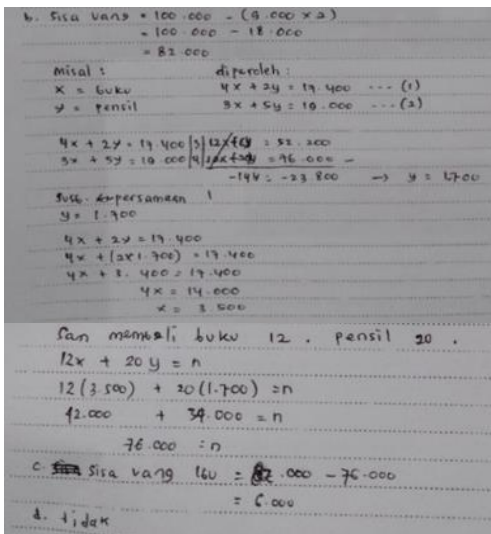 b. Sisa uang = 100.000 - (9.000 x 2)
= 100.000 - 18.000
= 82.000
misal : diperoleh :
x = buku 4x + 2y = 17.400 ... (1)
y = pensil 3x + 5y = 19.000 ... (2)
4x + 2y = 17.400 |3| 12x + 6y = 52.200
3x + 5y = 19.000 |4| 12x + 20y = 76.000 -
-14y = -23.800 → y = 1.700
Subs. persamaan 1
y = 1.700
4x + 2y = 17.400
4x + (2x1.700) = 17.400
4x + 3.400 = 17.400
4x = 14.000
x = 3.500
San membeli buku 12 . pensil 20 .
12x + 20y = n
12 (3.500) + 20 (1.700) = n
42.000 + 34.000 = n
76.000 = n
c. Sisa uang Ibu = 82.000 - 76.000
= 6.000
d. tidak